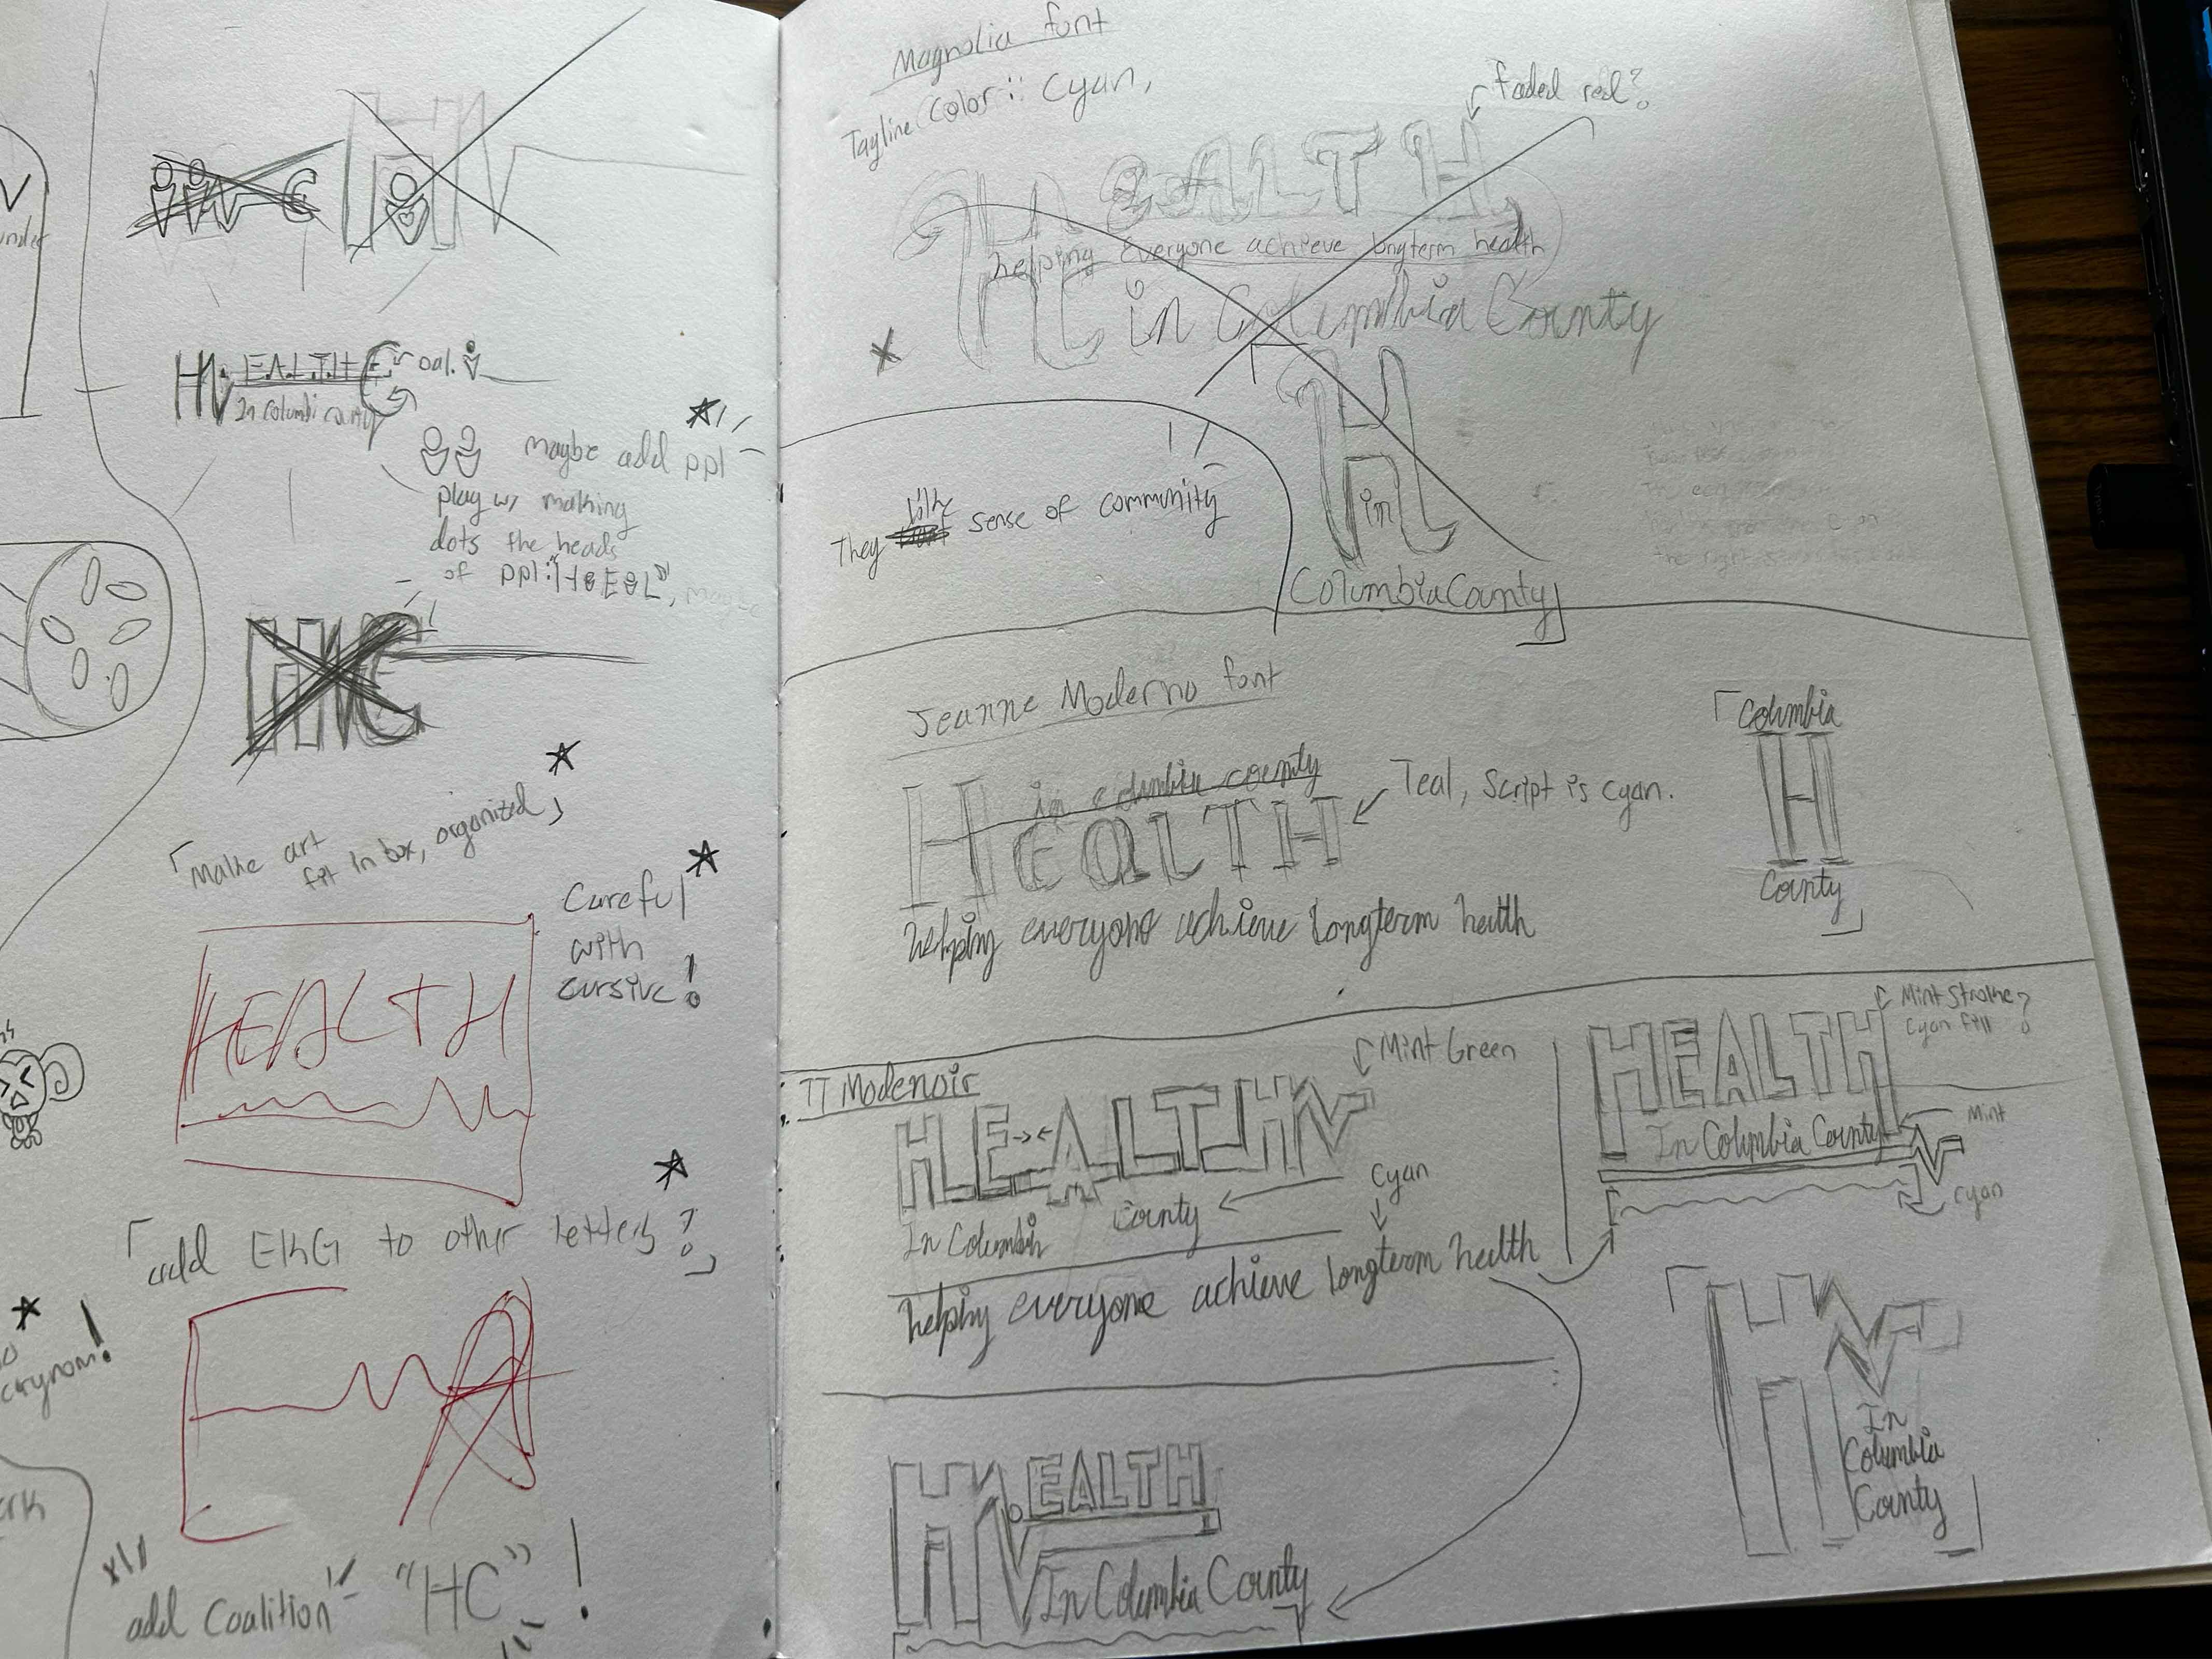 under
HEALTH
In Columbi county
oal.
maybe add ppl
play w/ making
dots the heads
of ppl:
HC
「Make art
fit in box, organized」
Careful
with
cursive!
HEALTH
「add EKG to other letters?」
E
A
acrynom!
add Coalition
"HC" !
Magnolia font
Tagline Color: Cyan,
faded red?
HEALTH
helping everyone achieve longterm health
in Columbia County
H
in
Columbia County
They like sense of community
Jeanne Moderno font
in columbia county
HEALTH
Teal, Script is cyan.
helping everyone achieve longterm health
「Columbia
H
County」
TT Modenoir
Mint Green
HEALTH
Cyan
In Columbia County
helping everyone achieve longterm health
Mint Stroke?
Cyan fill
HEALTH
In Columbia County
Mint
Cyan
H
In
Columbia
County
H
EALTH
In Columbia County